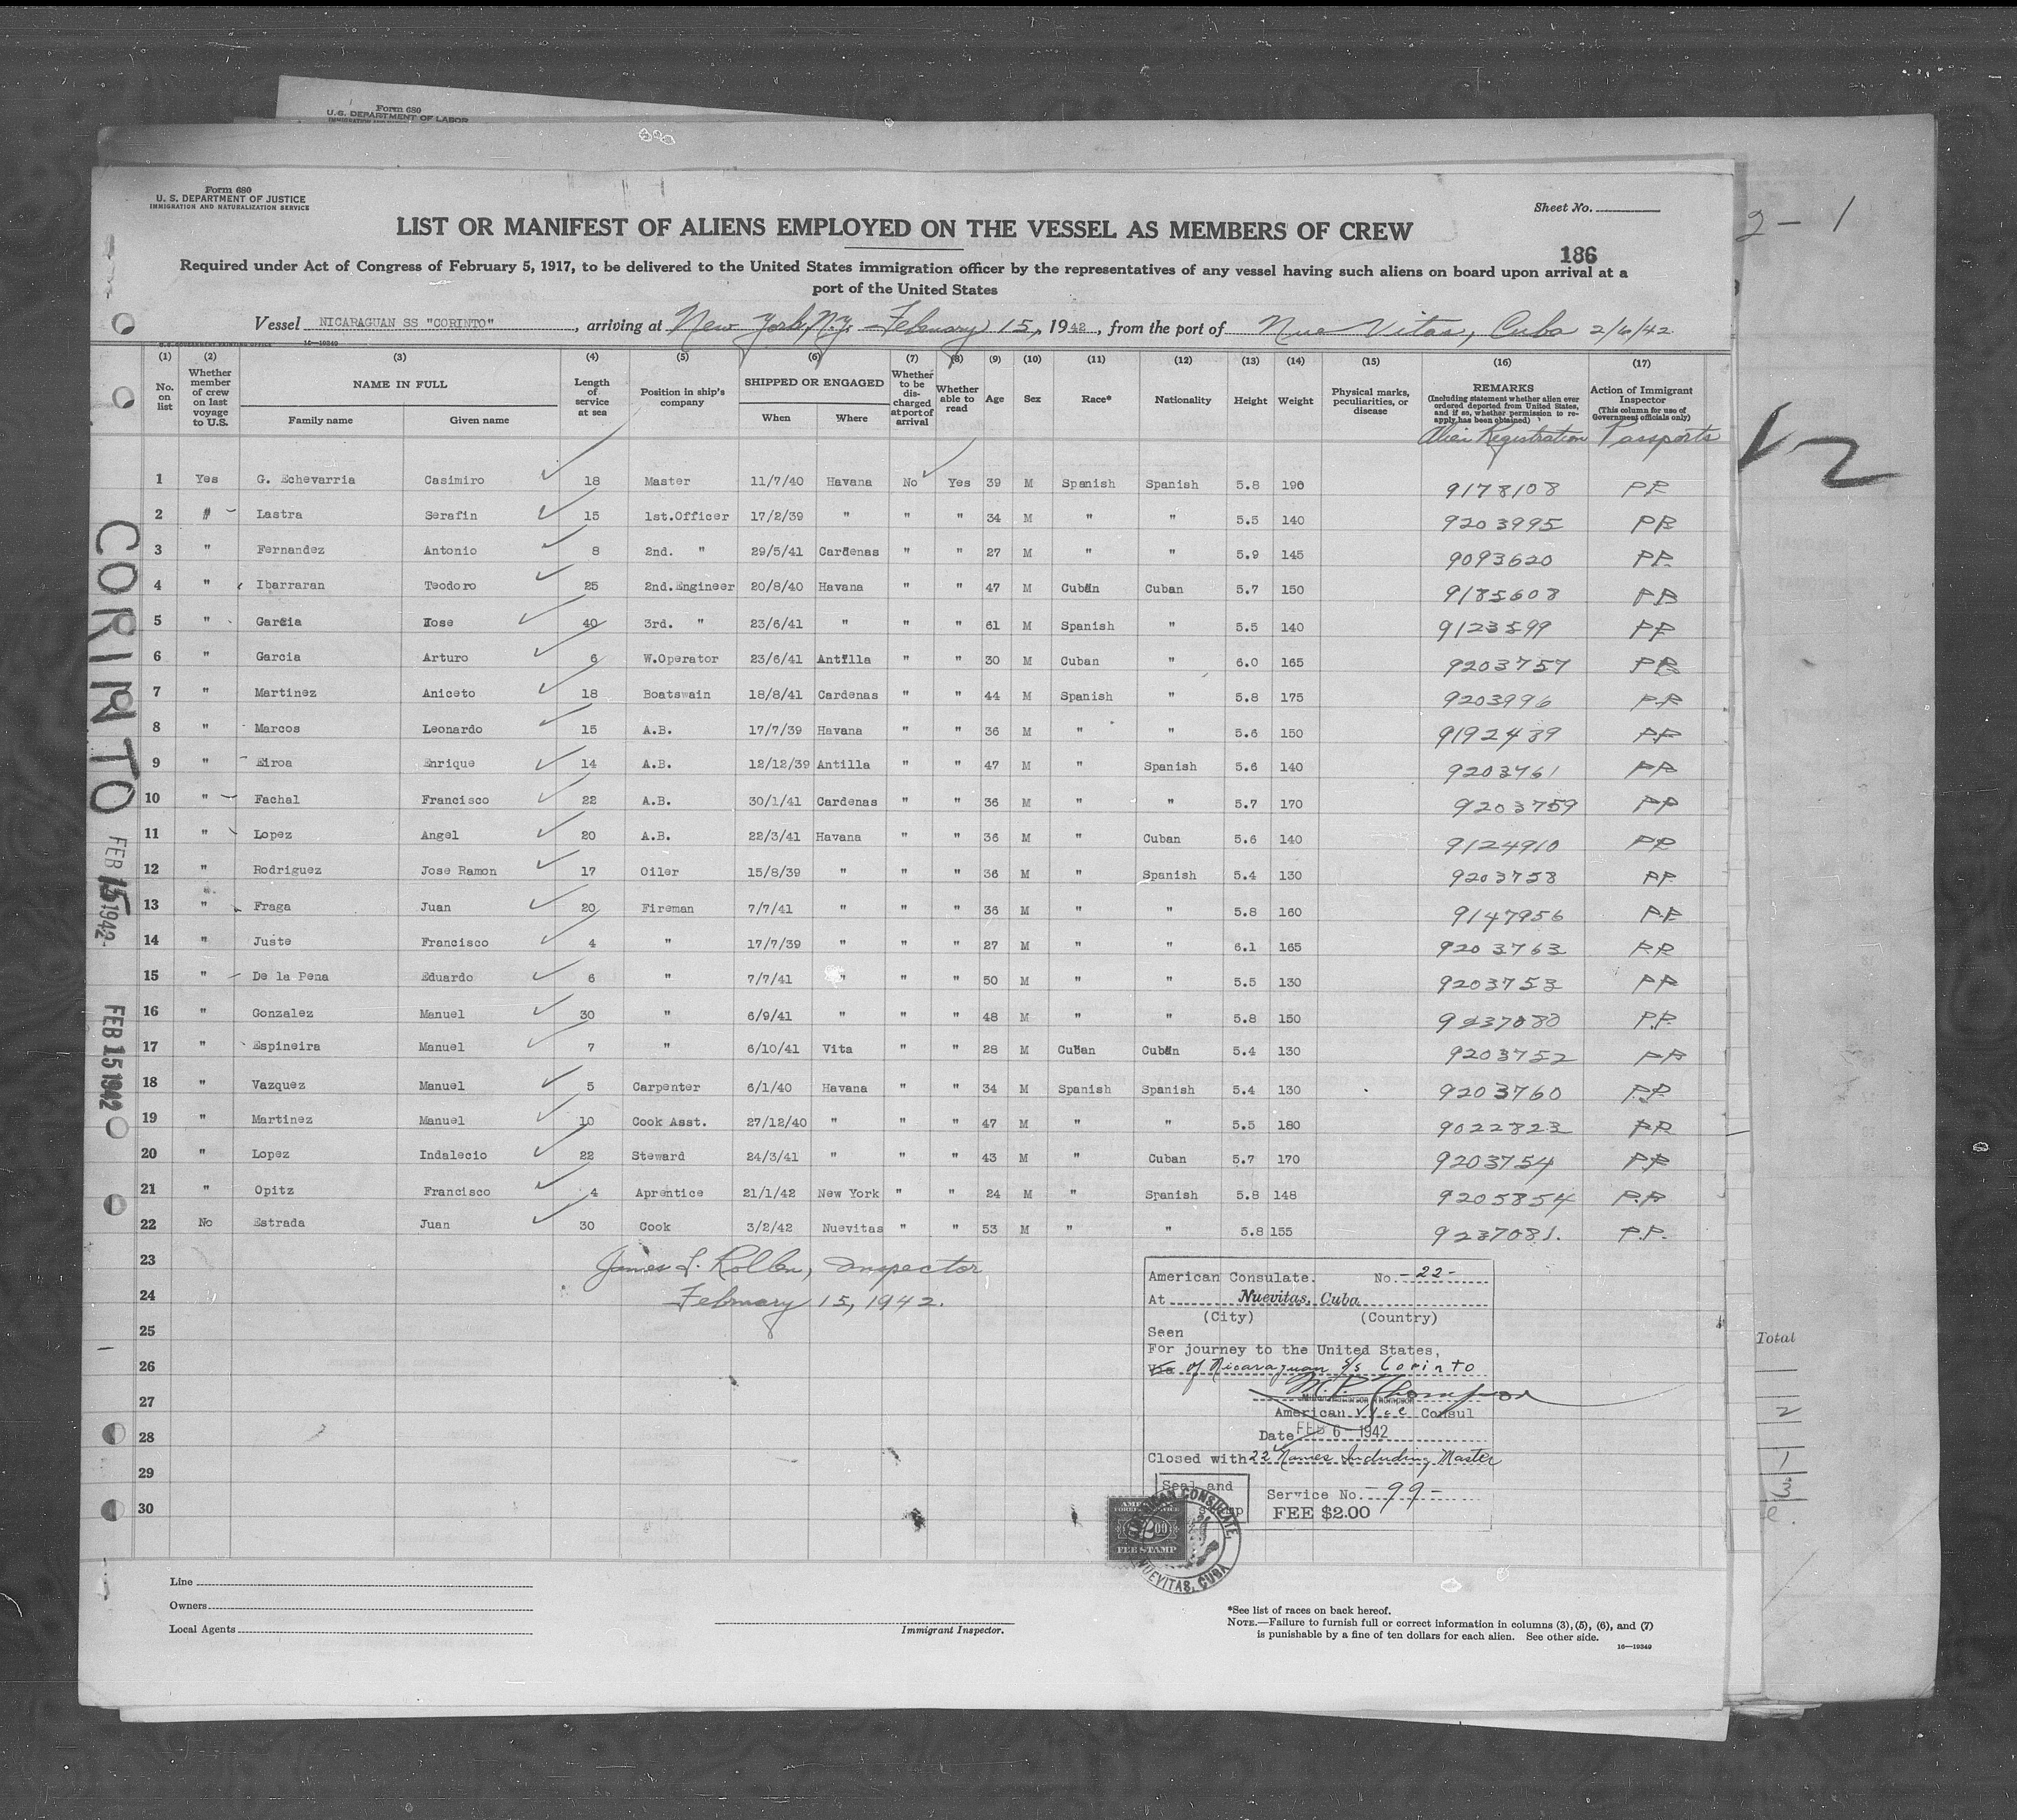 Form 680
U.S. DEPARTMENT OF LABOR
Form 680
U. S. DEPARTMENT OF JUSTICE
IMMIGRATION AND NATURALIZATION SERVICE
Sheet No.
LIST OR MANIFEST OF ALIENS EMPLOYED ON THE VESSEL AS MEMBERS OF CREW
186
2 - 1
Required under Act of Congress of February 5, 1917, to be delivered to the United States immigration officer by the representatives of any vessel having such aliens on board upon arrival at a
port of the United States
Vessel NICARAGUAN SS "CORINTO", arriving at New York, N.Y. February 15, 1942, from the port of Nue Vitas, Cuba 2/6/42
U.S. GOVERNMENT PRINTING OFFICE 16—19349
(1) (2) (3) (4) (5) (6) (7) (8) (9) (10) (11) (12) (13) (14) (15) (16) (17)
No. on list
Whether member of crew on last voyage to U.S.
NAME IN FULL
Family name Given name
Length of service at sea
Position in ship's company
SHIPPED OR ENGAGED
When Where
Whether to be discharged at port of arrival
Whether able to read
Age
Sex
Race*
Nationality
Height
Weight
Physical marks, peculiarities, or disease
REMARKS
(Including statement whether alien ever ordered deported from United States, and if so, whether permission to reapply has been obtained)
Action of Immigrant Inspector
(This column for use of Government officials only)
Alien Registration Passports
1 Yes G. Echevarria Casimiro 18 Master 11/7/40 Havana No Yes 39 M Spanish Spanish 5.8 190 9178108 PP
2 " Lastra Serafin 15 1st.Officer 17/2/39 " " " 34 M " " 5.5 140 9203995 PP
3 " Fernandez Antonio 8 2nd. " 29/5/41 Cardenas " " 27 M " " 5.9 145 9093620 PP.
4 " Ibarraran Teodoro 25 2nd.Engineer 20/8/40 Havana " " 47 M Cuban Cuban 5.7 150 9185608 PP
5 " Garcia Jose 40 3rd. " 23/6/41 " " " 61 M Spanish " 5.5 140 9123599 PP
6 " Garcia Arturo 6 W.Operator 23/6/41 Antilla " " 30 M Cuban " 6.0 165 9203757 PP
7 " Martinez Aniceto 18 Boatswain 18/8/41 Cardenas " " 44 M Spanish " 5.8 175 9203996 PP
8 " Marcos Leonardo 15 A.B. 17/7/39 Havana " " 36 M " " 5.6 150 9192439 PP
9 " Eiroa Enrique 14 A.B. 12/12/39 Antilla " " 47 M " Spanish 5.6 140 9203761 PP
10 " Fachal Francisco 22 A.B. 30/1/41 Cardenas " " 36 M " " 5.7 170 9203759 PP
11 " Lopez Angel 20 A.B. 22/3/41 Havana " " 36 M " Cuban 5.6 140 9124910 PP
12 " Rodriguez Jose Ramon 17 Oiler 15/8/39 " " " 36 M " Spanish 5.4 130 9203758 PP.
13 " Fraga Juan 20 Fireman 7/7/41 " " " 36 M " " 5.8 160 9147956 P.P.
14 " Juste Francisco 4 " 17/7/39 " " " 27 M " " 6.1 165 9203763 P.P.
15 " De la Pena Eduardo 6 " 7/7/41 " " " 50 M " " 5.5 130 9203753 PP
16 " Gonzalez Manuel 30 " 6/9/41 " " " 48 M " " 5.8 150 9237080 P.P.
17 " Espineira Manuel 7 " 6/10/41 Vita " " 28 M Cuban Cuban 5.4 130 9203752 PP
18 " Vazquez Manuel 5 Carpenter 6/1/40 Havana " " 34 M Spanish Spanish 5.4 130 9203760 P.P.
19 " Martinez Manuel 10 Cook Asst. 27/12/40 " " " 47 M " " 5.5 180 9022823 PP
20 " Lopez Indalecio 22 Steward 24/3/41 " " " 43 M " Cuban 5.7 170 9203754 P.P.
21 " Opitz Francisco 4 Aprentice 21/1/42 New York " " 24 M " Spanish 5.8 148 9205854 P.P.
22 No Estrada Juan 30 Cook 3/2/42 Nuevitas " " 53 M " " 5.8 155 9237081. P.P.
23
24
25
26
27
28
29
30
James L. Rollen, Inspector
February 15, 1942.
CORINTO
FEB 15 1942
FEB 15 1942
American Consulate. No. -22-
At Nuevitas, Cuba
(City) (Country)
Seen
For journey to the United States,
Via of Nicaraguan S/s Corinto
M. P. Thompson
American Vice Consul
Date FEB 6 - 1942
Closed with 22 Names Including Master
Seal and
Service No. -99-
FEE $2.00
2.00
FEE STAMP
AMERICAN CONSULATE,
NUEVITAS, CUBA
Line
Owners
Local Agents
Immigrant Inspector.
*See list of races on back hereof.
NOTE.—Failure to furnish full or correct information in columns (3), (5), (6), and (7)
is punishable by a fine of ten dollars for each alien. See other side.
16—19349
Total
2
1
3